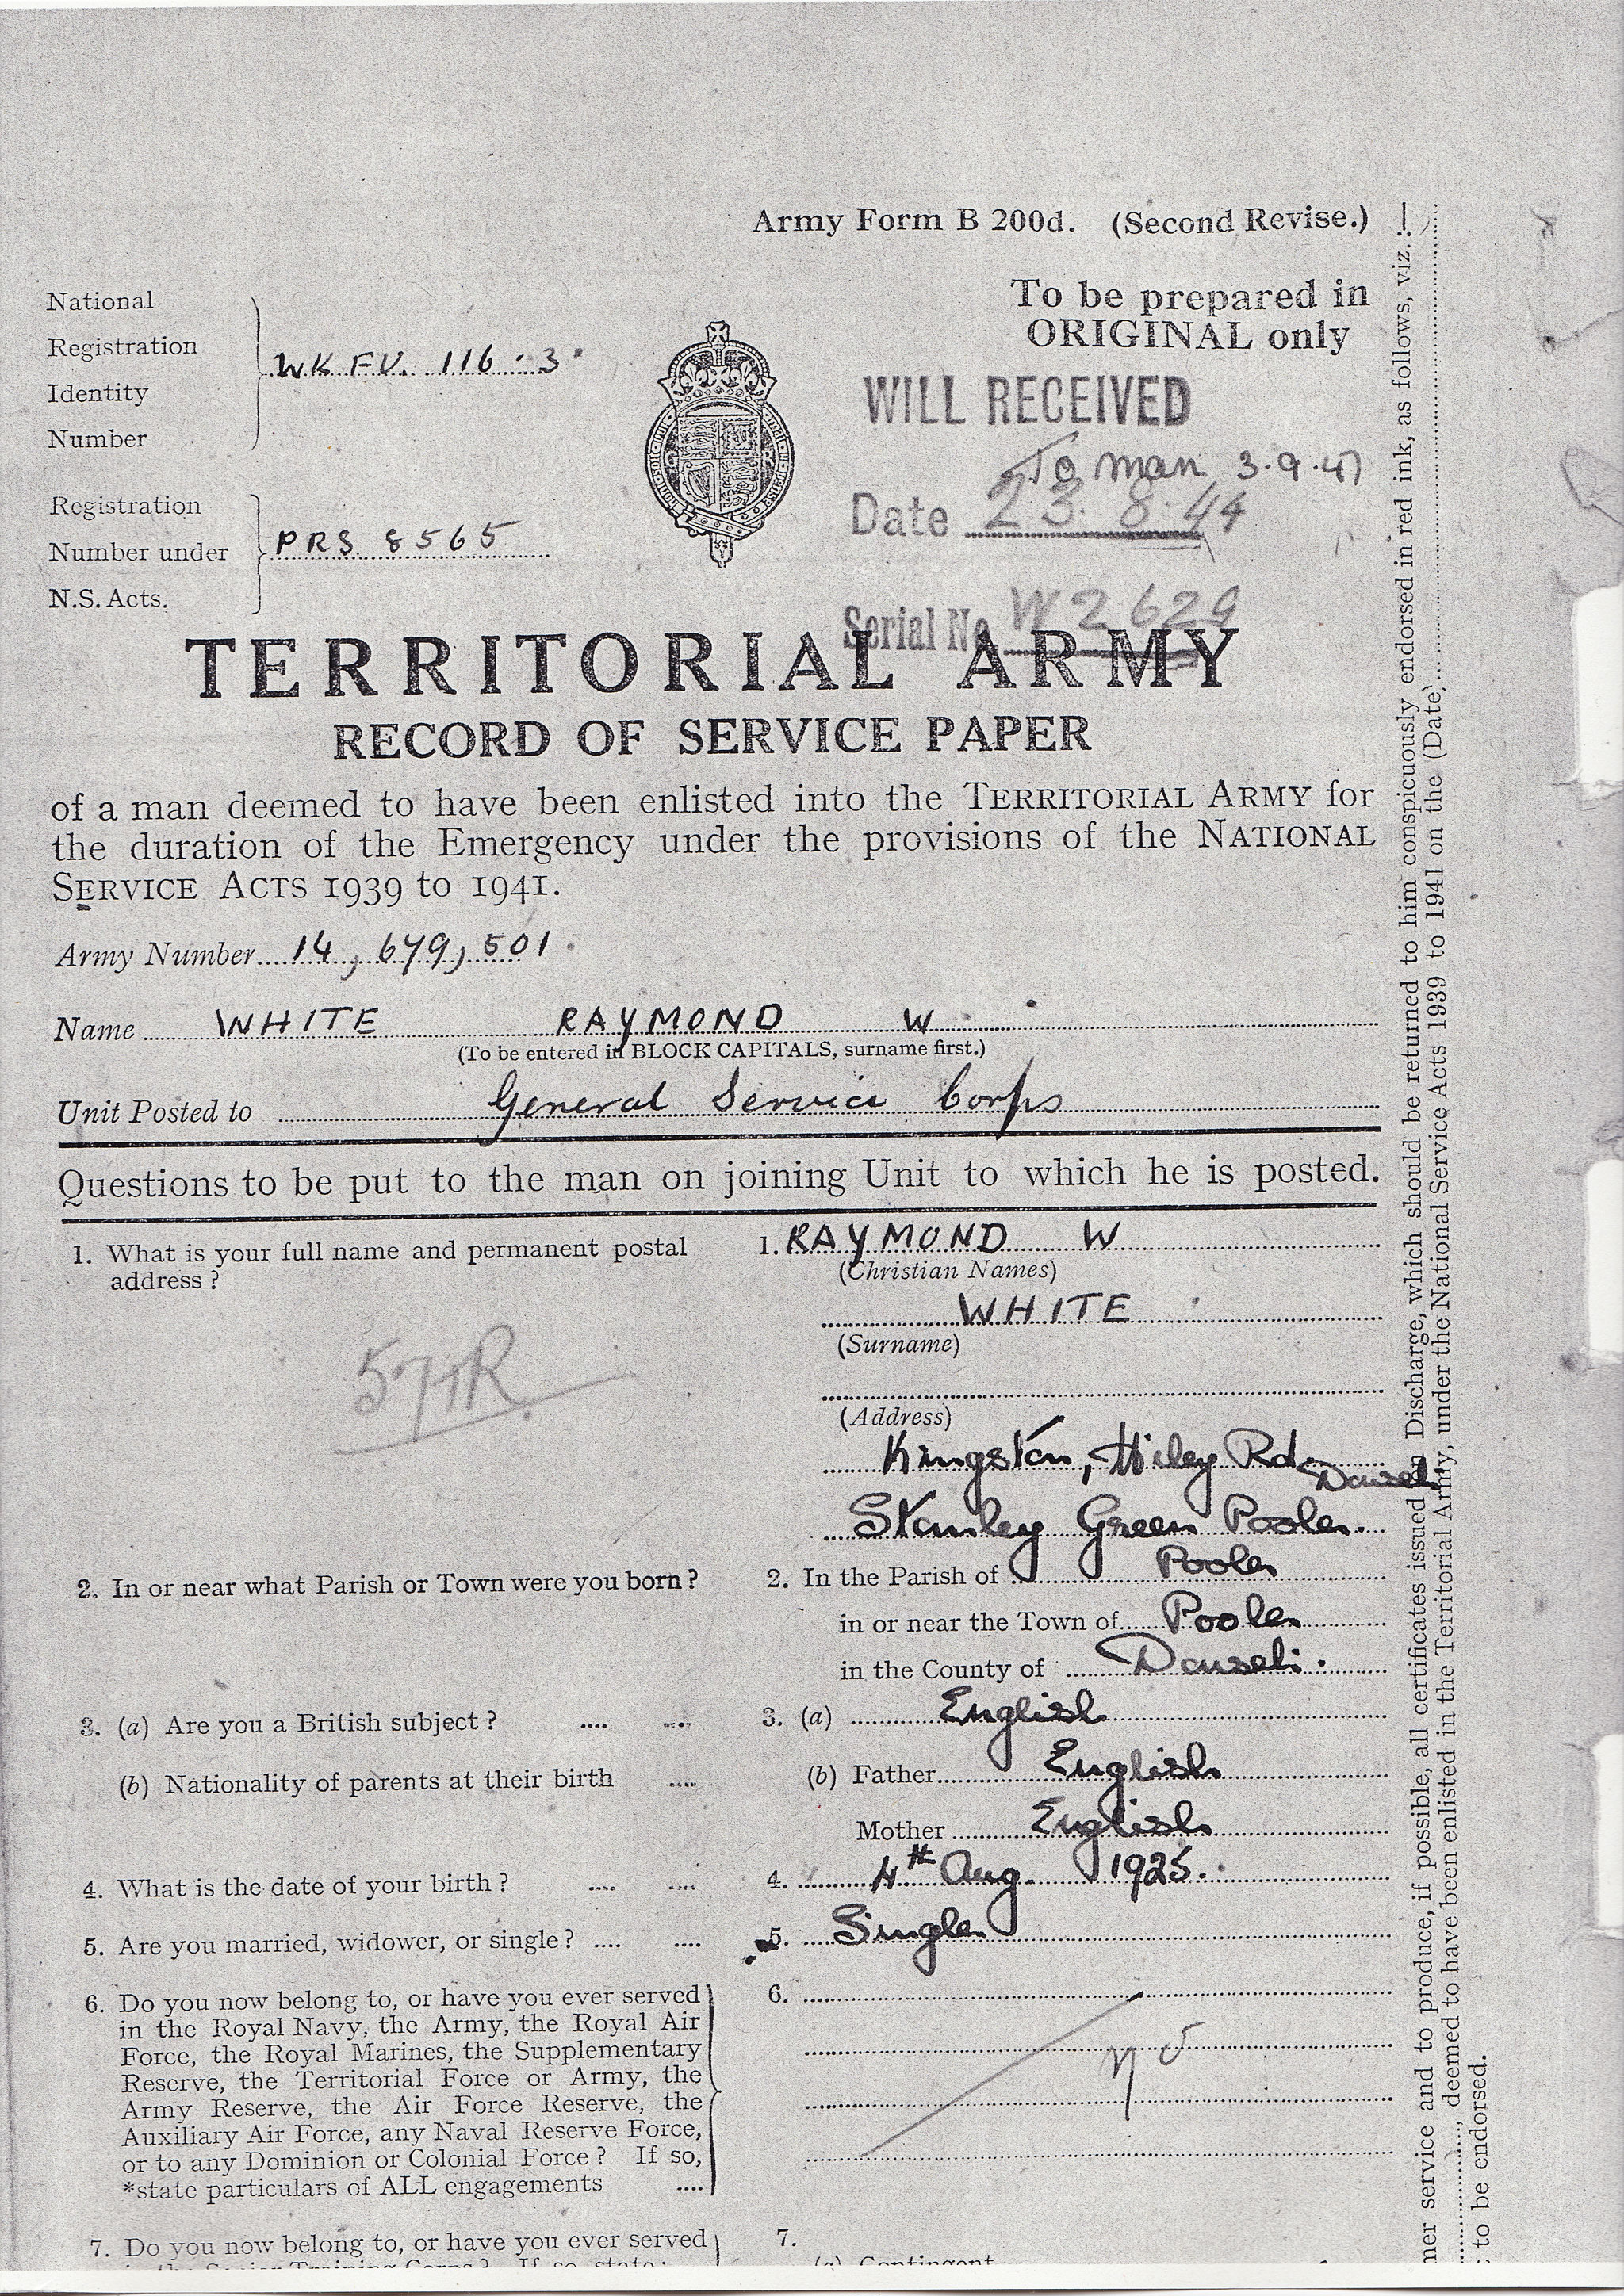 Army Form B 200d. (Second Revise.)
To be prepared in
ORIGINAL only
National
Registration
Identity
Number
WK FV. 116 : 3
Registration
Number under
N.S. Acts.
PRS 8565
WILL RECEIVED
To man 3.9.47
Date 23.8.44
Serial No. W 2629
TERRITORIAL ARMY
RECORD OF SERVICE PAPER
of a man deemed to have been enlisted into the TERRITORIAL ARMY for
the duration of the Emergency under the provisions of the NATIONAL
SERVICE ACTS 1939 to 1941.
Army Number 14,679,501.
Name WHITE RAYMOND W
(To be entered in BLOCK CAPITALS, surname first.)
Unit Posted to General Service Corps
Questions to be put to the man on joining Unit to which he is posted.
1. What is your full name and permanent postal
address ?
1. RAYMOND W
(Christian Names)
WHITE
(Surname)
(Address)
Kingston, Rd. Dorset
Stanley Green Poole.
2. In or near what Parish or Town were you born ?
2. In the Parish of Poole
in or near the Town of Poole
in the County of Dorset.
3. (a) Are you a British subject ? .... ....
3. (a) English
(b) Nationality of parents at their birth ....
(b) Father English
Mother English
4. What is the date of your birth ? .... ....
4. 4th Aug. 1925.
5. Are you married, widower, or single ? .... ....
5. Single
6. Do you now belong to, or have you ever served
in the Royal Navy, the Army, the Royal Air
Force, the Royal Marines, the Supplementary
Reserve, the Territorial Force or Army, the
Army Reserve, the Air Force Reserve, the
Auxiliary Air Force, any Naval Reserve Force,
or to any Dominion or Colonial Force ? If so,
*state particulars of ALL engagements ....
6.
no
7. Do you now belong to, or have you ever served
7.
(a) Contingent
mer service and to produce, if possible, all certificates issued on Discharge, which should be returned to him conspicuously endorsed in red ink, as follows, viz. :
deemed to have been enlisted in the Territorial Army, under the National Service Acts 1939 to 1941 on the (Date)
to be endorsed.